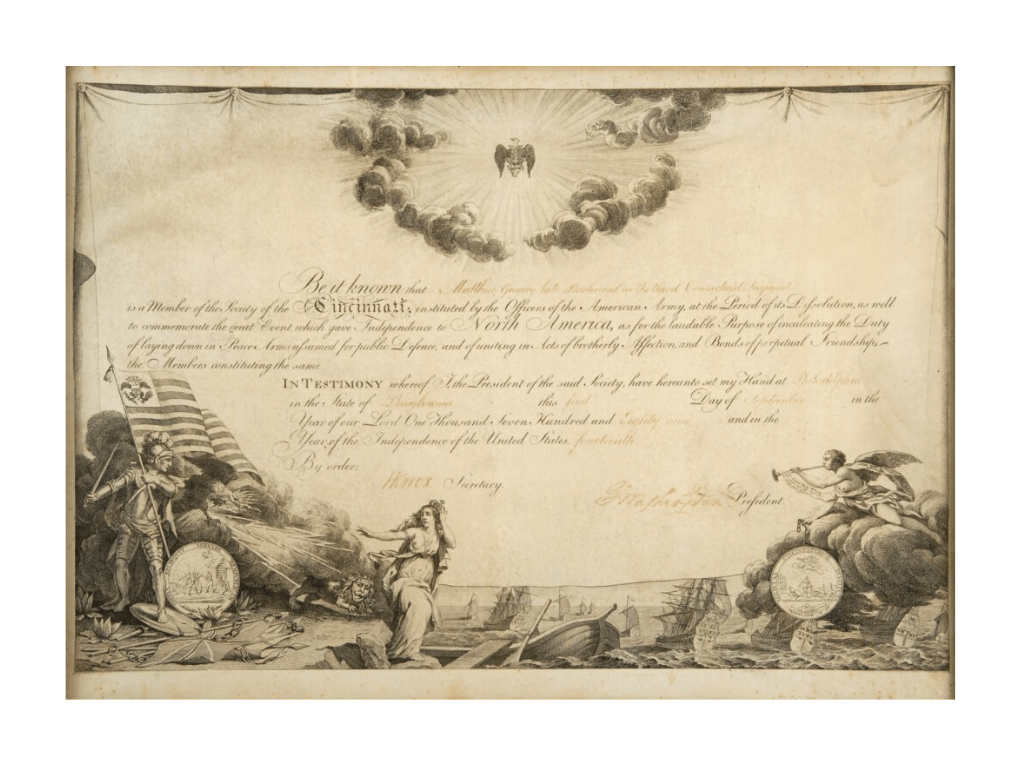 Be it known that Matthew Gregory late Lieutenant in the third Connecticut Regiment
is a Member of the Society of the Cincinnati; instituted by the Officers of the American Army, at the Period of its Dissolution, as well
to commemorate the great Event which gave Independence to North America, as for the laudable Purpose of inculcating the Duty
of laying down in Peace Arms assumed for public Defence, and of uniting in Acts of brotherly Affection, and Bonds of perpetual Friendship,
the Members constituting the same.
In Testimony whereof I, the President of the said Society, have hereunto set my Hand at Philadelphia
in the State of Pennsylvania this first Day of September in the
Year of our Lord One Thousand Seven Hundred and and in the
Year of the Independence of the United States.
By order,
HKnox Secretary.
GWashington President.